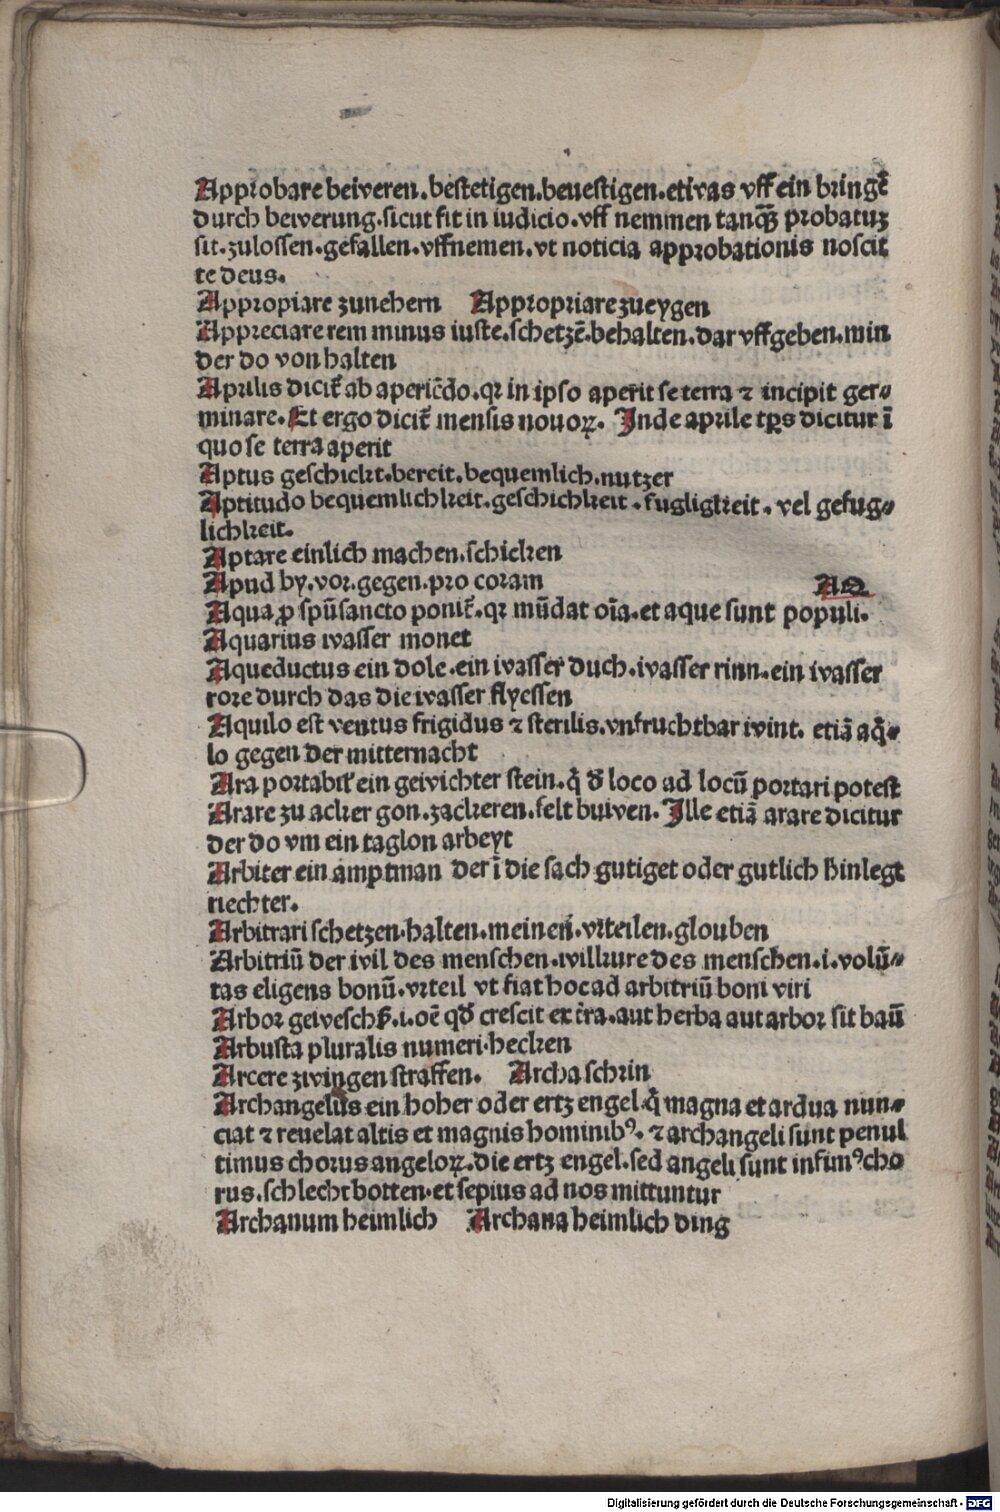 Approbare beweren.bestetigen.beuestigen.etwas vff ein bringē
durch bewerung.sicut fit in iudicio.vff nemmen tanqꝫ probatuꝫ
sit.zulossen.gefallen.vffnemen.vt noticia approbationis noscit
te deus.
Appropiare zunehern Appropriare zueygen
Appreciare rem minus iuste.schetzē.behalten.dar vffgeben.min
der do von halten
Aprilis dicit̄ ab aperiēdo.qꝛ in ipso aperit se terra ⁊ incipit ger⸗
minare.Et ergo dicit̄ mensis nouoꝝ. Inde aprile tꝑs dicitur ī
quo se terra aperit
Aptus geschickt.bereit.bequemlich.nutzer
Aptitudo bequemlichkeit.geschichkeit.fugligkeit.vel gefug⸗
lichkeit.
Aptare einlich machen.schicken
Apud by.vor.gegen.pro coram
AQ
Aqua ꝓ spūsancto ponit̄.qꝛ mūdat oīa.et aque sunt populi.
Aquarius wasser monet
Aqueductus ein dole.ein wasser duch.wasser rinn.ein wasser
rore durch das die wasser flyessen
Aquilo est ventus frigidus ⁊ sterilis.vnfruchtbar wint. etiā aq̄⸗
lo gegen der mitternacht
Ara portabil̄ ein gewichter stein.q̄ đ loco ad locū portari potest
Arare zu acker gon.zackeren.felt buwen. Ille etiā arare dicitur
der do vm ein taglon arbeyt
Arbiter ein amptman der ī die sach gutiget oder gutlich hinlegt
riechter.
Arbitrari schetzen.halten.meinen.vrteilen.glouben
Arbitriū der wil des menschen.wilkure des menschen.i.volū⸗
tas eligens bonū.vrteil vt fiat hoc ad arbitriū boni viri
Arbor geweschß.i.oē qđ crescit ex t̄ra.aut herba aut arbor sit baū
Arbusta pluralis numeri.hecken
Arcere zwingen straffen. Archa schrin
Archangelus ein hoher oder ertz engel.q̄ magna et ardua nun⸗
ciat ⁊ reuelat altis et magnis hominibꝰ. ⁊ archangeli sunt penul
timus chorus angeloꝝ.die ertz engel.sed angeli sunt infimꝰ cho
rus.schlecht botten.et sepius ad nos mittuntur
Archanum heimlich Archana heimlich ding
Digitalisierung gefördert durch die Deutsche Forschungsgemeinschaft - DFG